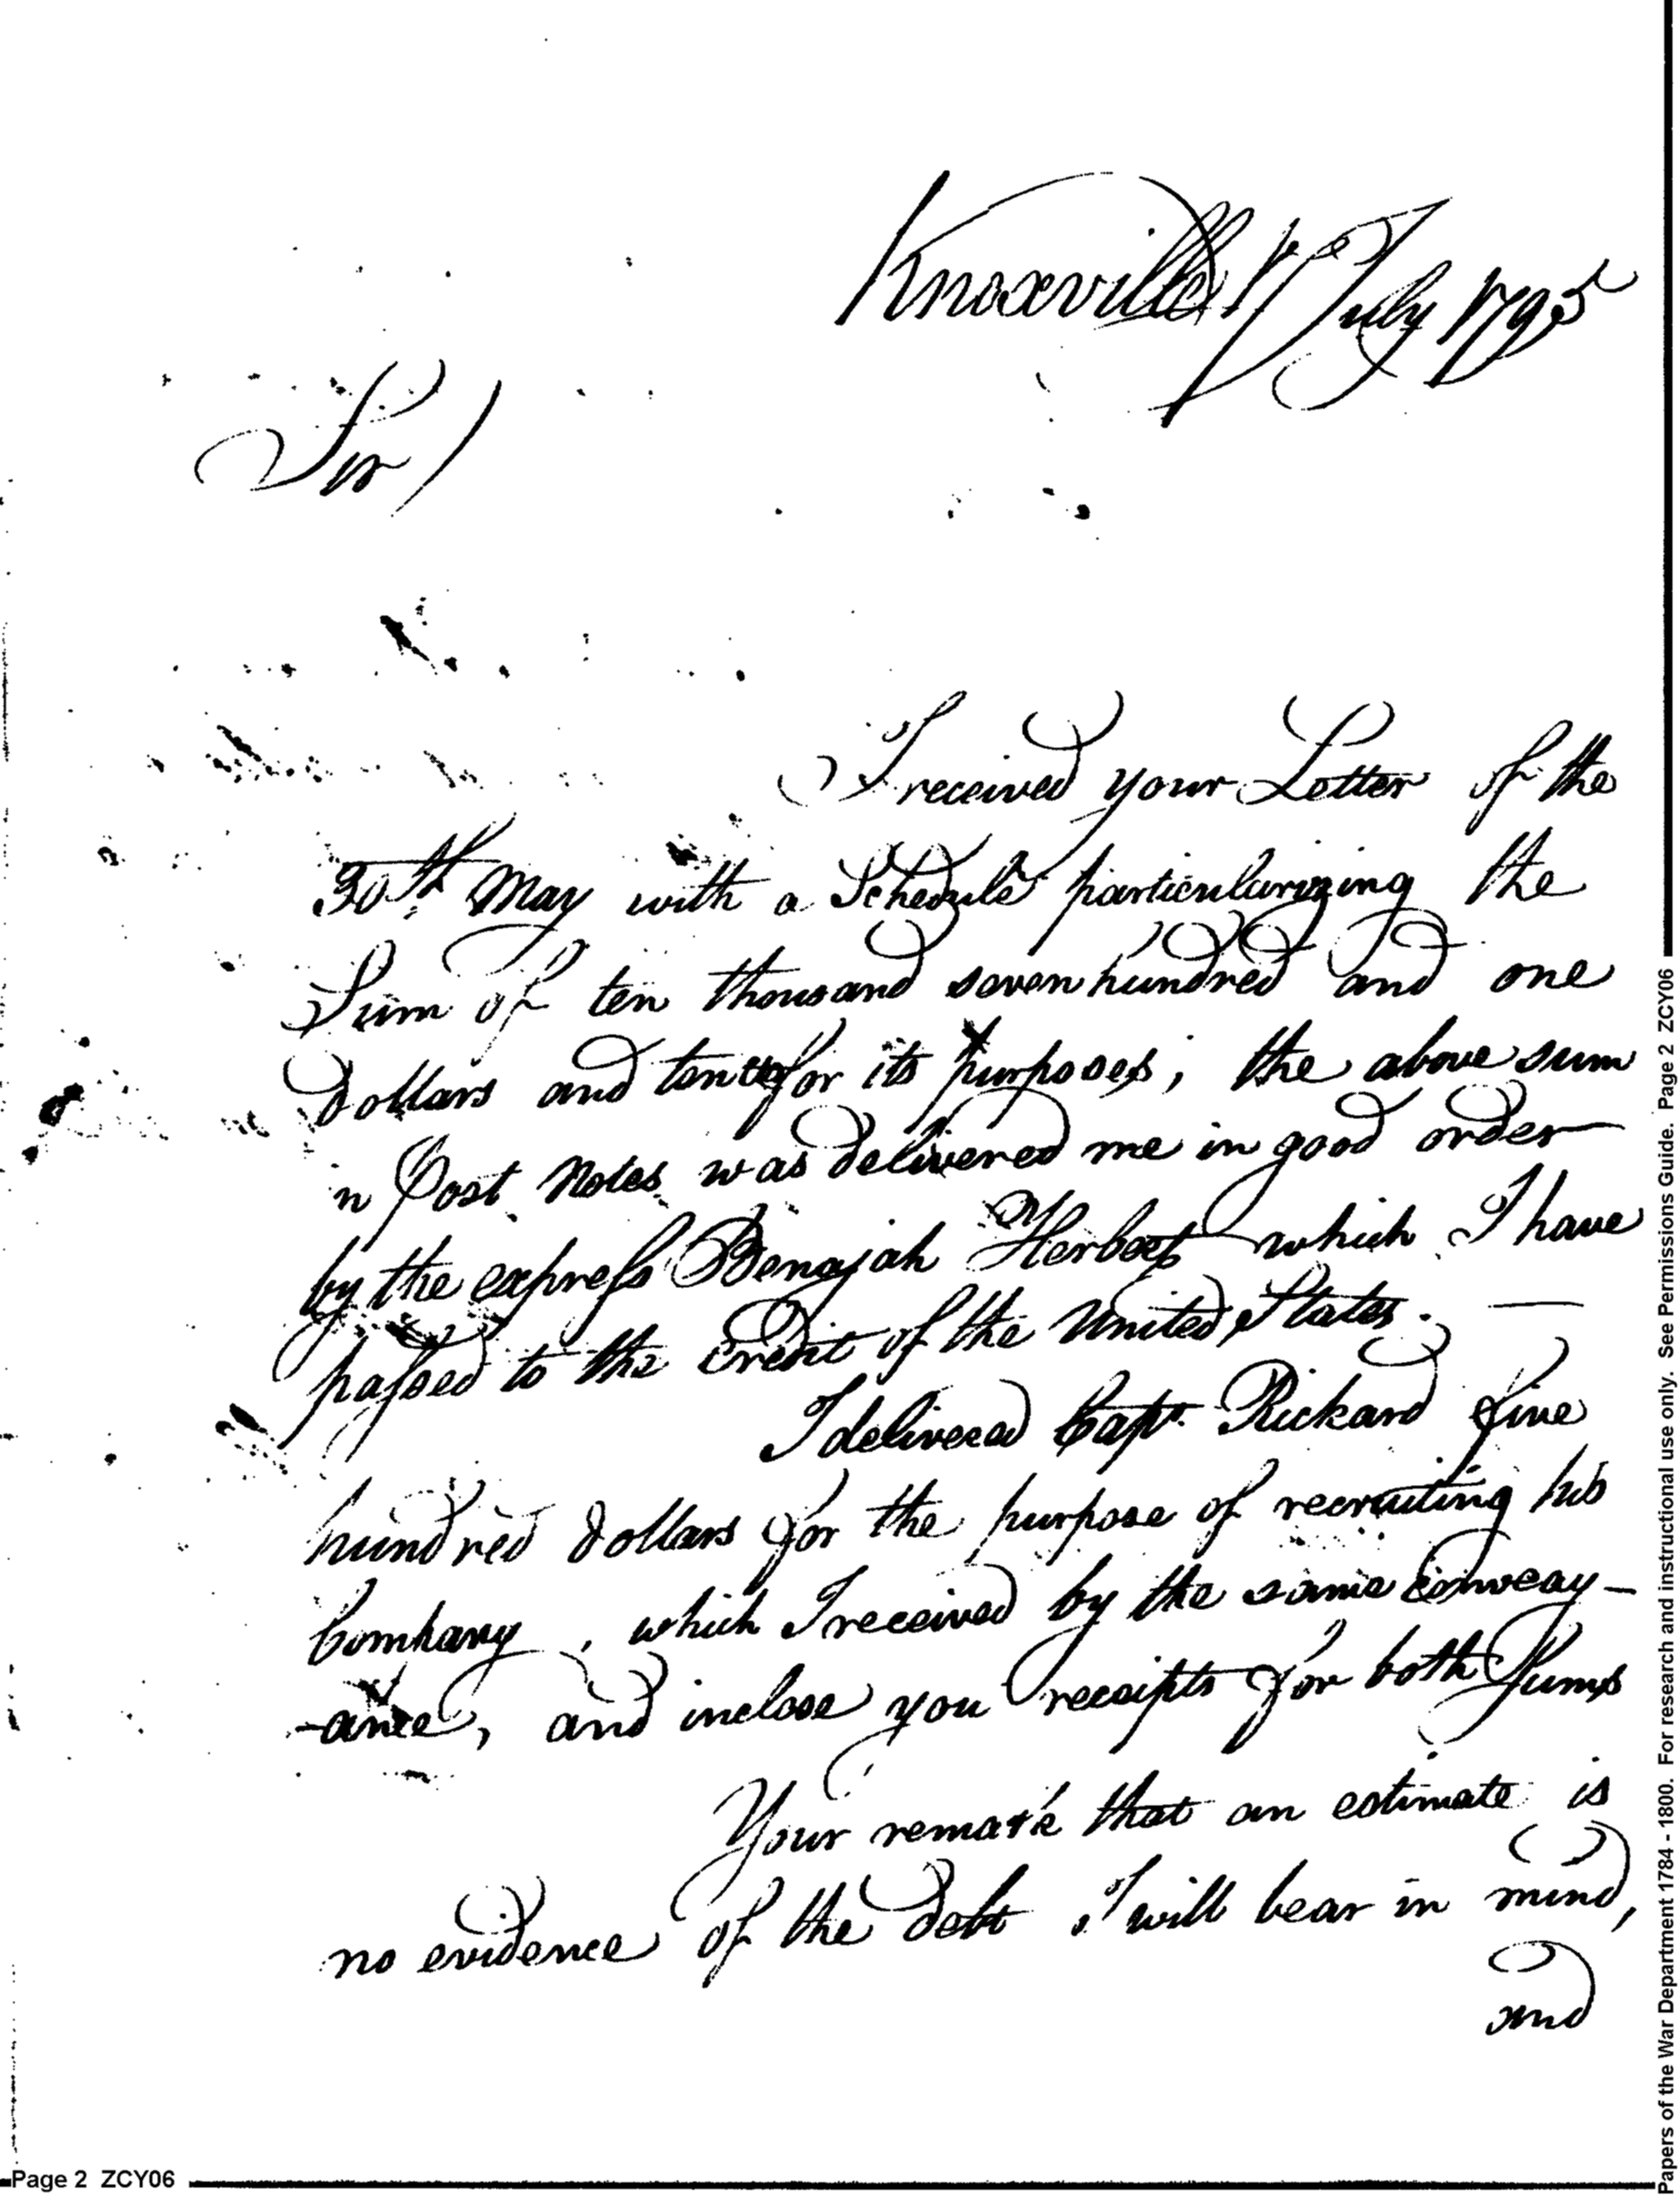 Knoxville 17 July 1795
Sir/
I received your Letter of the
30th May with a Schedule particularizing the
Sum of ten thousand seven hundred and one
dollars and ten for its purposes; the above sum
n Post Notes was delivered me in good order
by the express Benajah Herbert which I have
passed to the credit of the United States. —
I delivered Capt. Rickard five
hundred dollars for the purpose of recruiting his
Company, which I received by the same conveay-
-ance, and inclose you receipts for both Sums
Your remark that an estimate is
no evidence of the debt I will bear in mind,
and
Page 2 ZCY06
Papers of the War Department 1784 - 1800. For research and instructional use only. See Permissions Guide. Page 2 ZCY06